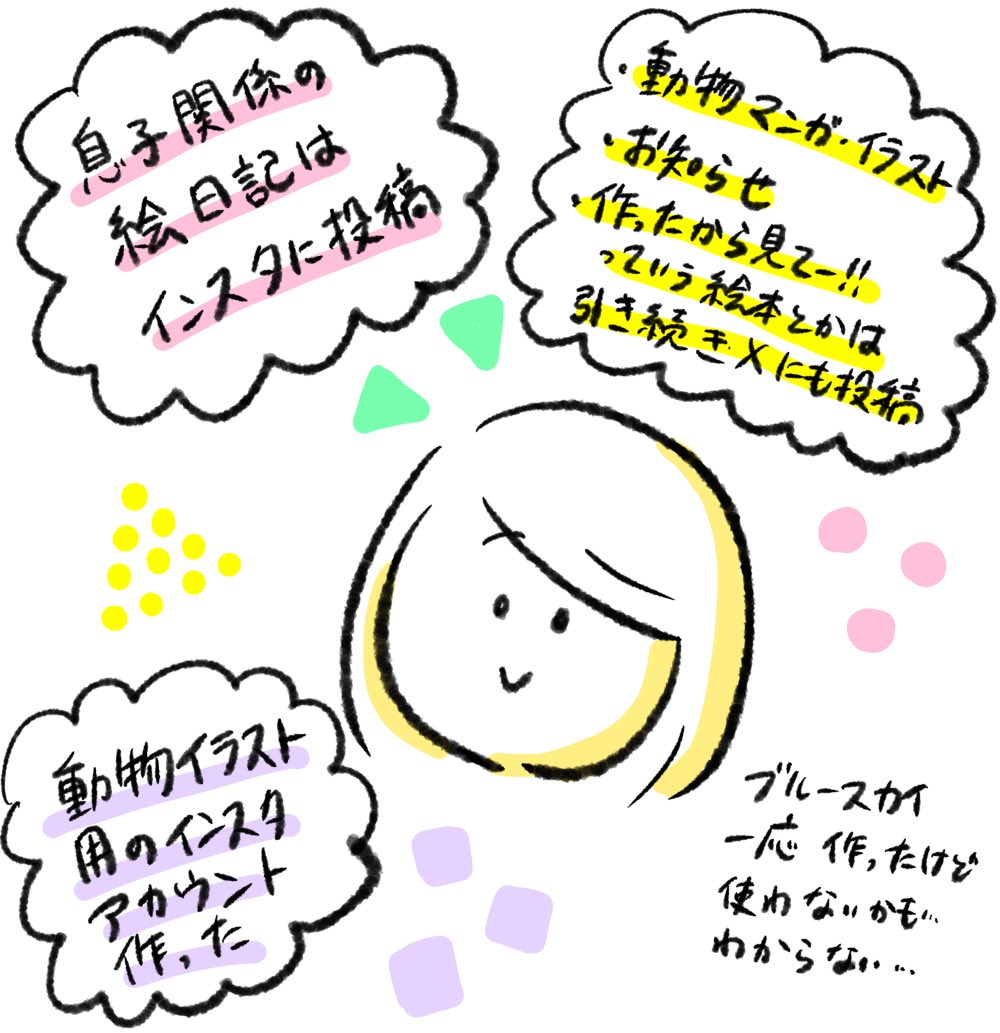 息子関係の
絵日記は
インスタに投稿
・動物マンガ・イラスト
・お知らせ
・作ったから見てー!!
っていう絵本とかは
引き続きXにも投稿
動物イラスト
用のインスタ
アカウント
作った
ブルースカイ
一応 作ったけど
使わないかも…
わからない…